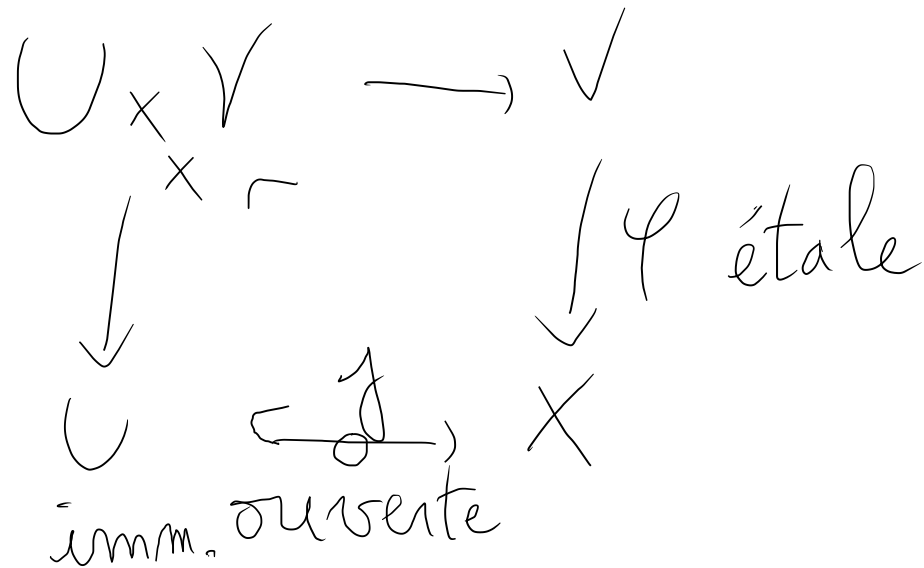 U ×_X V ⟶ V
↓ ⌜ ↓ φ étale
U ↪ j X
imm. ouverte